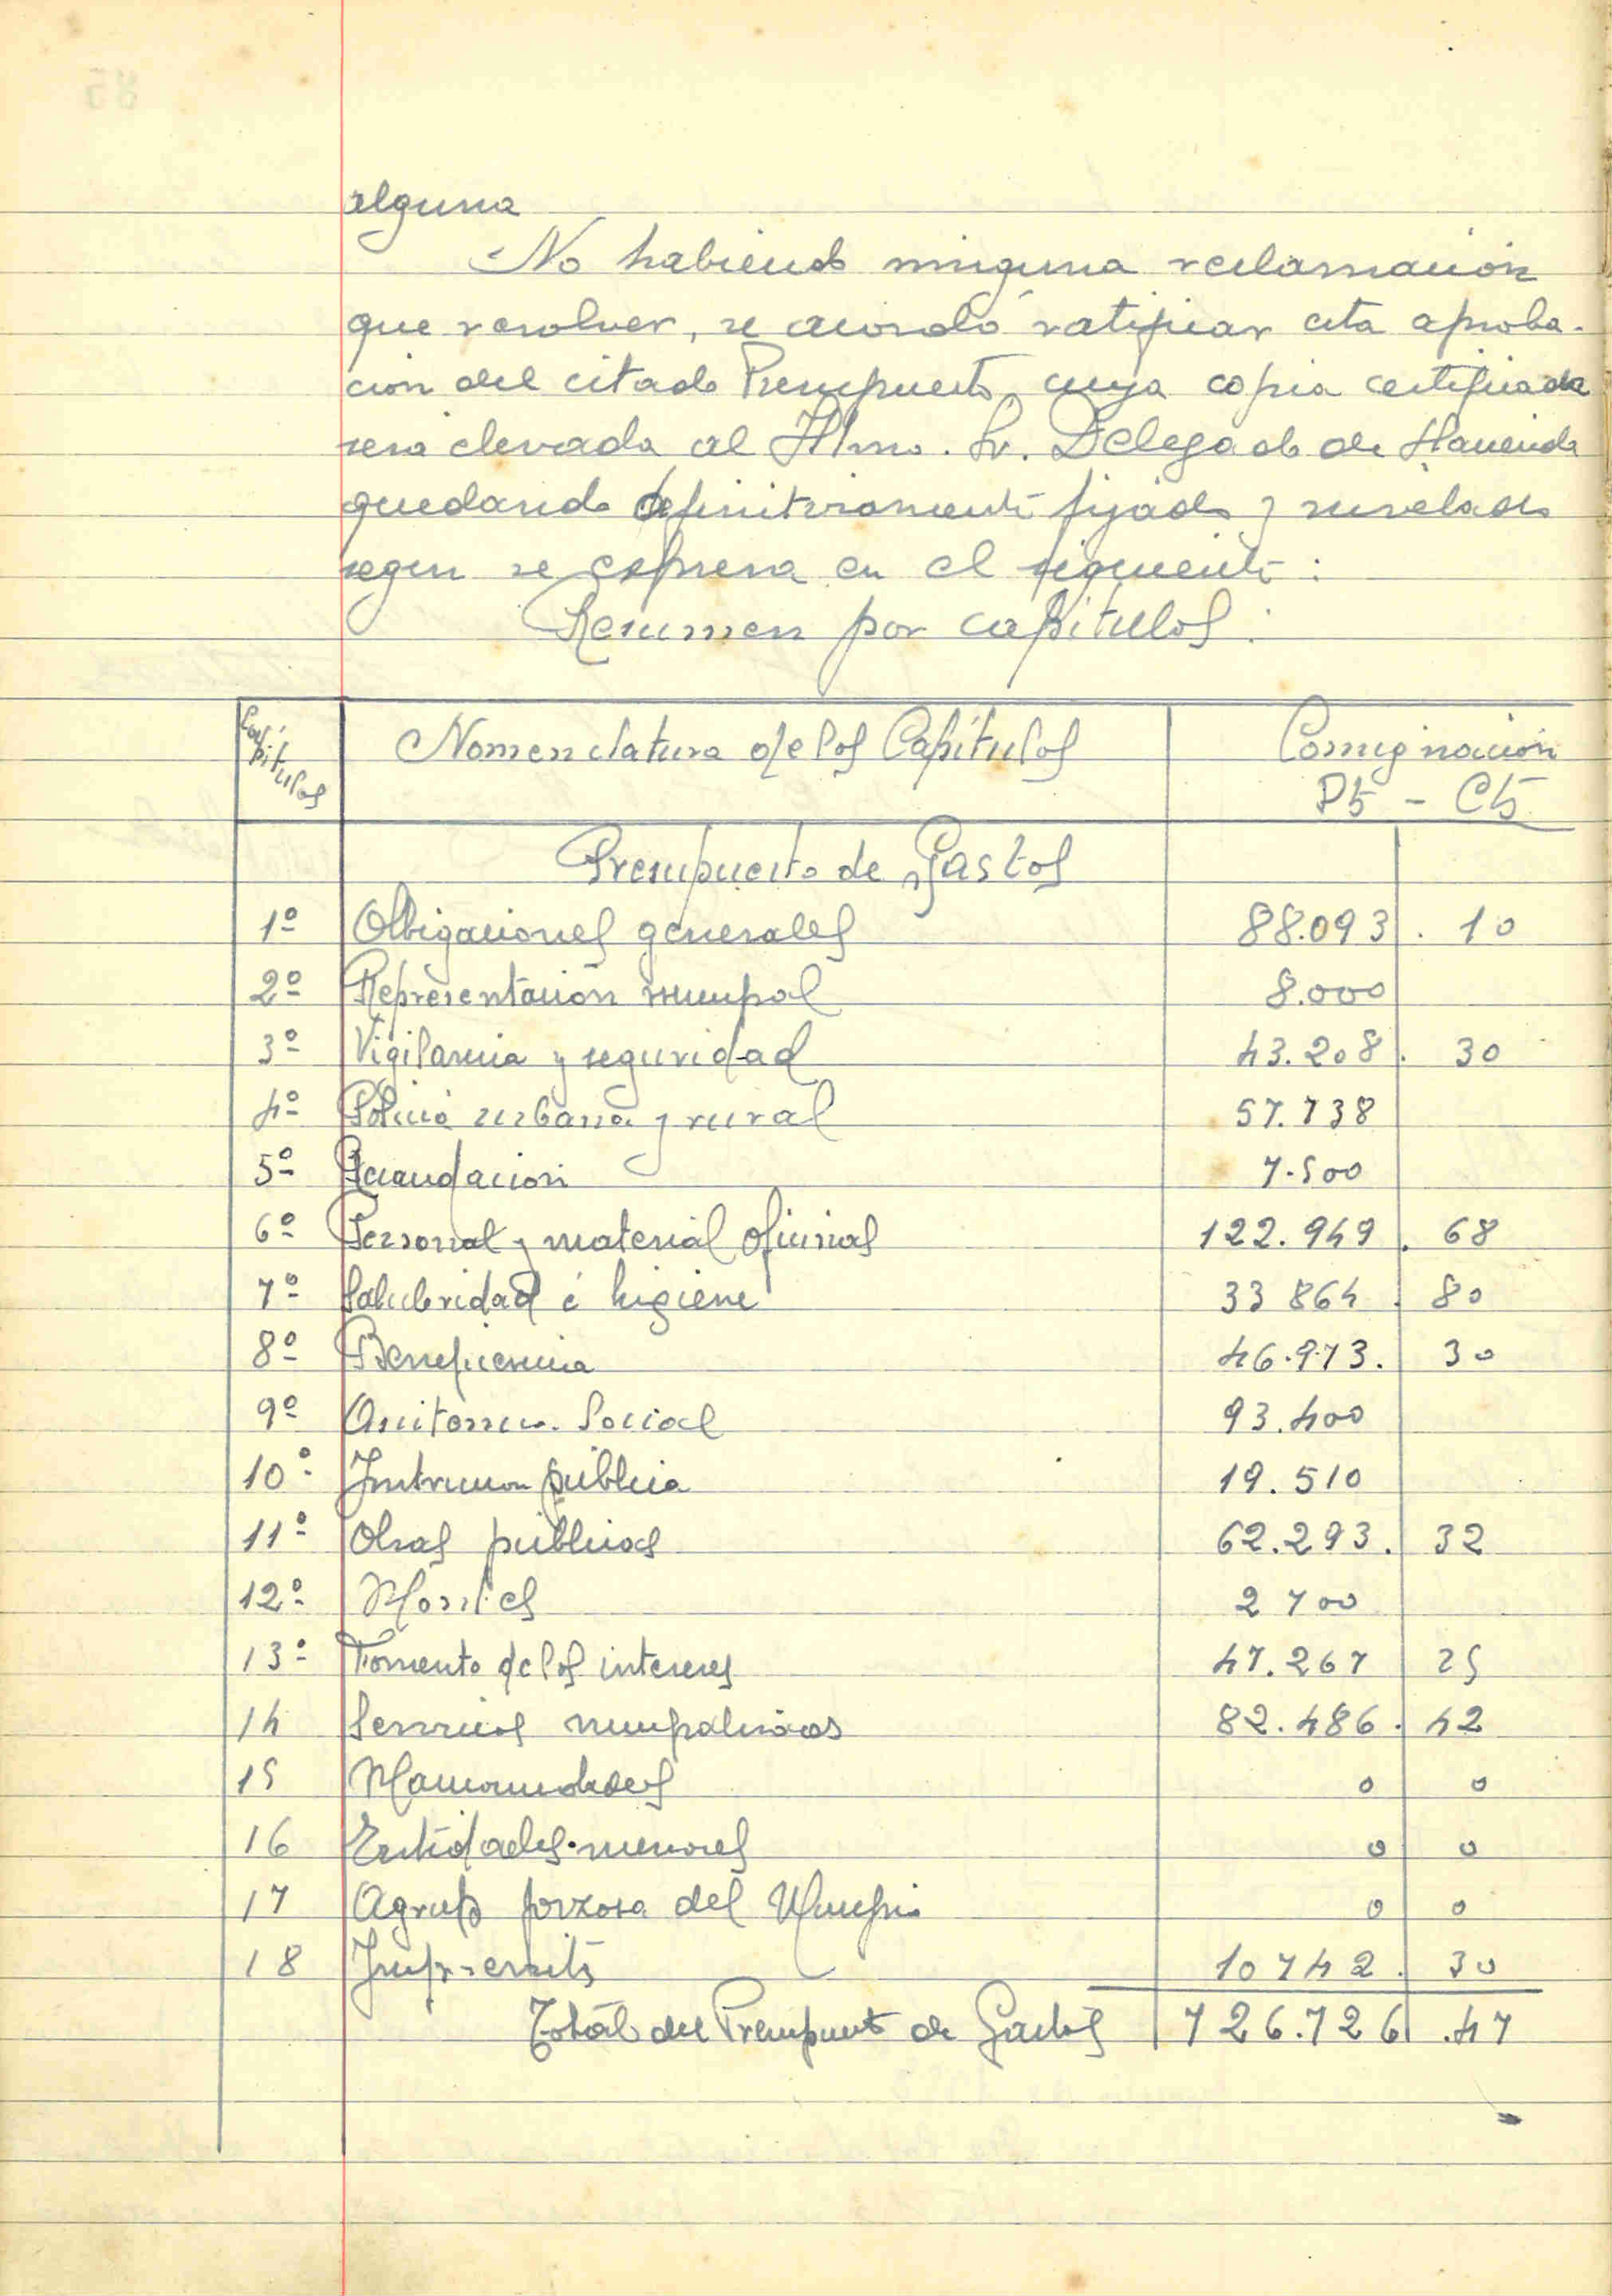 alguna
No habiendo ninguna reclamación
que resolver, se acordó ratificar esta aproba-
ción del citado Presupuesto, cuya copia certificada
sera elevada al Iltmo. Sr. Delegado de Hacienda
quedando definitivamente fijado y nivelado
segun se expresa en el siguiente:
Resumen por capitulos:
Capitulos Nomenclatura de los Capítulos Consignación
Pts - Cts
Presupuesto de Gastos
1º Obligaciones generales 88.093 . 10
2º Representación municpal 8.000
3º Vigilancia y seguridad 43.208 . 30
4º Policia urbana y rural 57.738
5º Recaudacion 7.500
6º Personal y material oficinas 122.949 . 68
7º Salubridad é higiene 33 864 . 80
8º Beneficencia 46.973. 30
9º Social 93.400
10º Instruccion pública 19.510
11º Obras públicas 62.293. 32
12º Montes 2 700
13º Fomento de los intereses 47.267 25
14 Servicios 82.486. 42
15 Mancomunidades 0 0
16 Entidades menores 0 0
17 Agrup forzosa del Municpio 0 0
18 Imprevistos 10742. 30
Total del Presupuesto de Gastos 726.726 .47